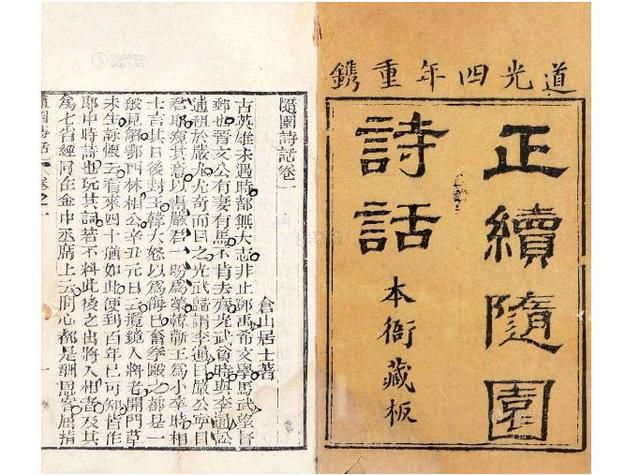 道光四年重鐫
正續隨園
詩話
本衙藏板
隨園詩話卷一
倉山居士著
古英雄未遇時都無大志非止鄧禹希文學馬武望督
郵也晉文公有妻有馬不肯去齊光武貧時與李通訟
逋租於嚴尤尤奇而目之光武歸謂李通曰嚴公寧目
君耶窺其意以得嚴君一盼為榮韓蘄王為小卒時相
士言其日後封王韓大怒以為侮己奮拳毆之都是一
般見解鄂西林相公辛丑元日云攬鏡人將老開門草
未生詠懷云看來四十猶如此便到百年已可知皆作
郎中時詩也玩其詞若不料此後之出將入相者及其
為七省經略在金中丞席上云問心都是酬恩客屈指
隨園詩話 卷之一